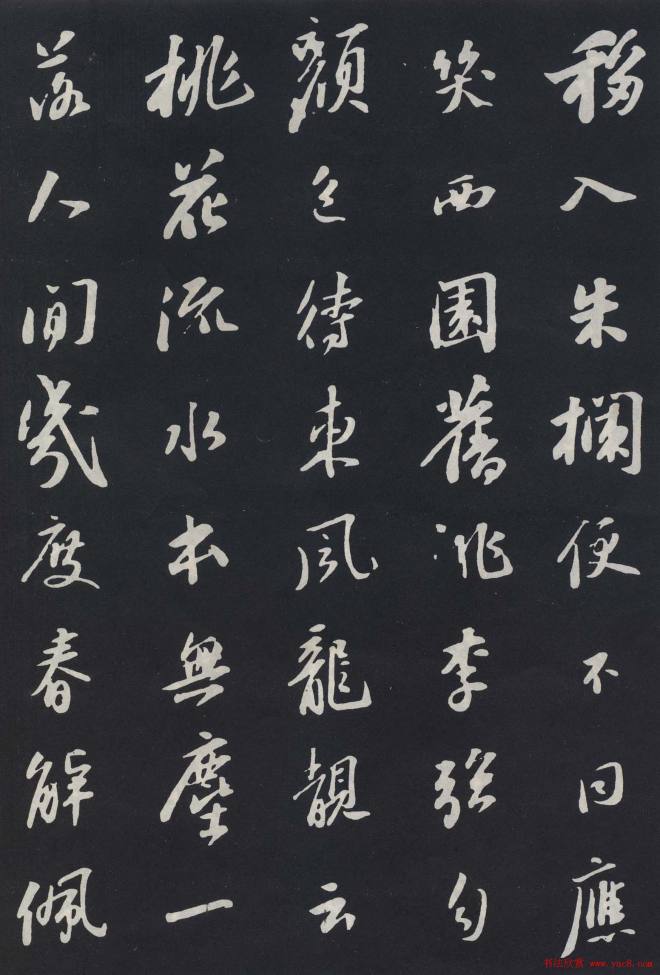 移入朱欄便不同應
笑西園舊桃李强勻
顏色待東風龍靚云
桃花流水本無塵一
落人間幾度春解佩
书法欣赏 www.yac8.com